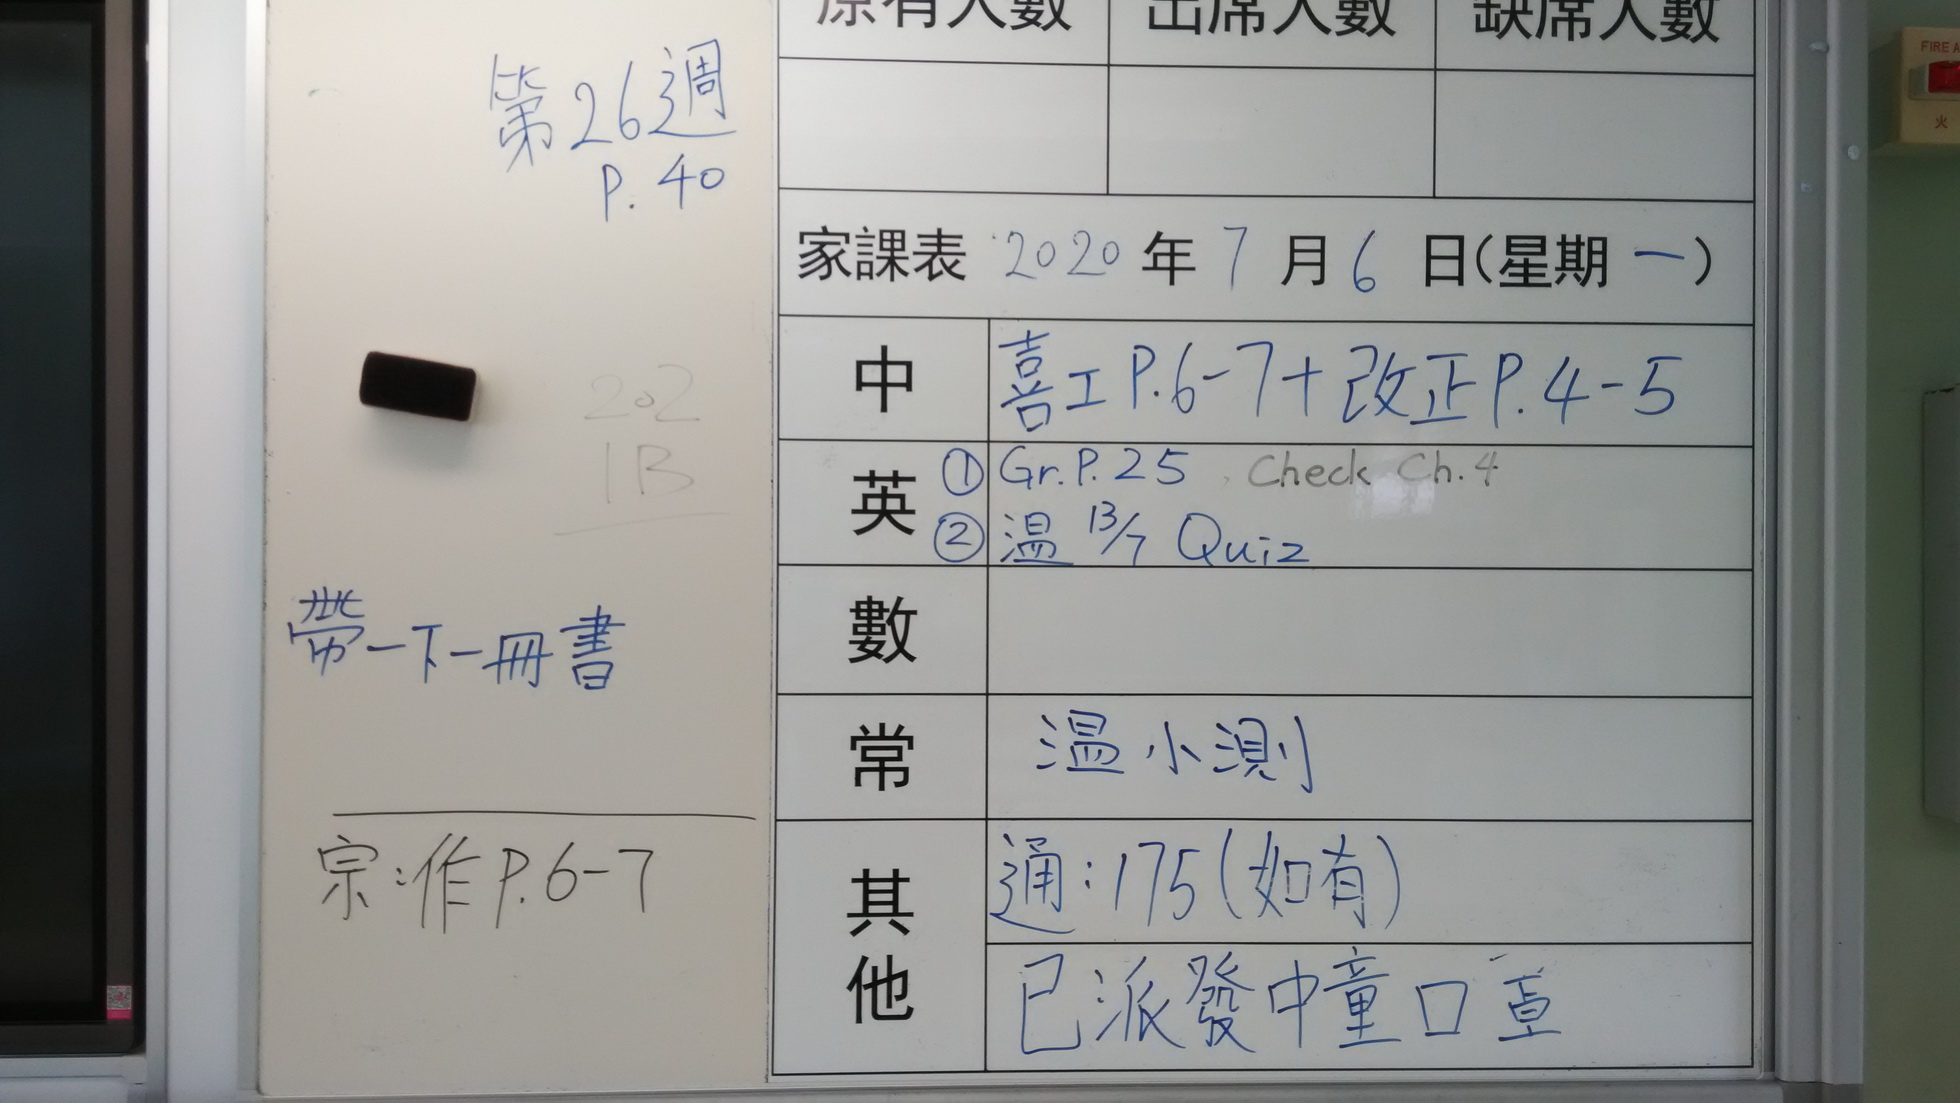 原有人數 出席人數 缺席人數
第26週
P. 40
家課表 2020 年 7 月 6 日(星期 一)
中 喜工P.6-7+改正P.4-5
英 ① Gr.P.25 , Check Ch.4
② 温 13/7 Quiz
數
常 温小測
其他 通:175(如有)
已派發中童口罩
202
1B
帶一下一冊書
宗:作P.6-7
FIRE A
火